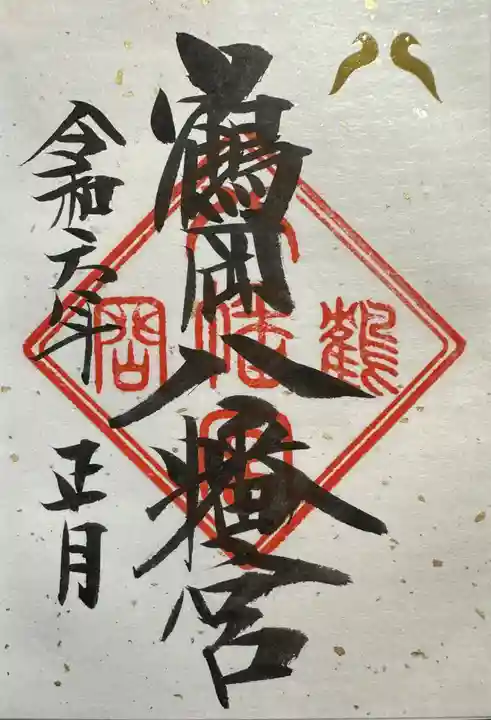 鶴岡八幡宮
令和六年
正月
鶴
岡
八
幡
宮